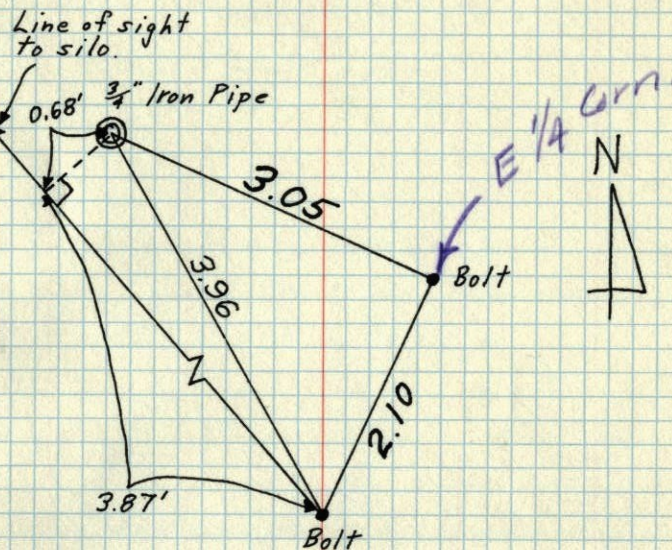 Line of sight
to silo.
0.68'
3/4" Iron Pipe
E 1/4 Corn
N
3.05
Bolt
3.96
2.10
3.87'
Bolt